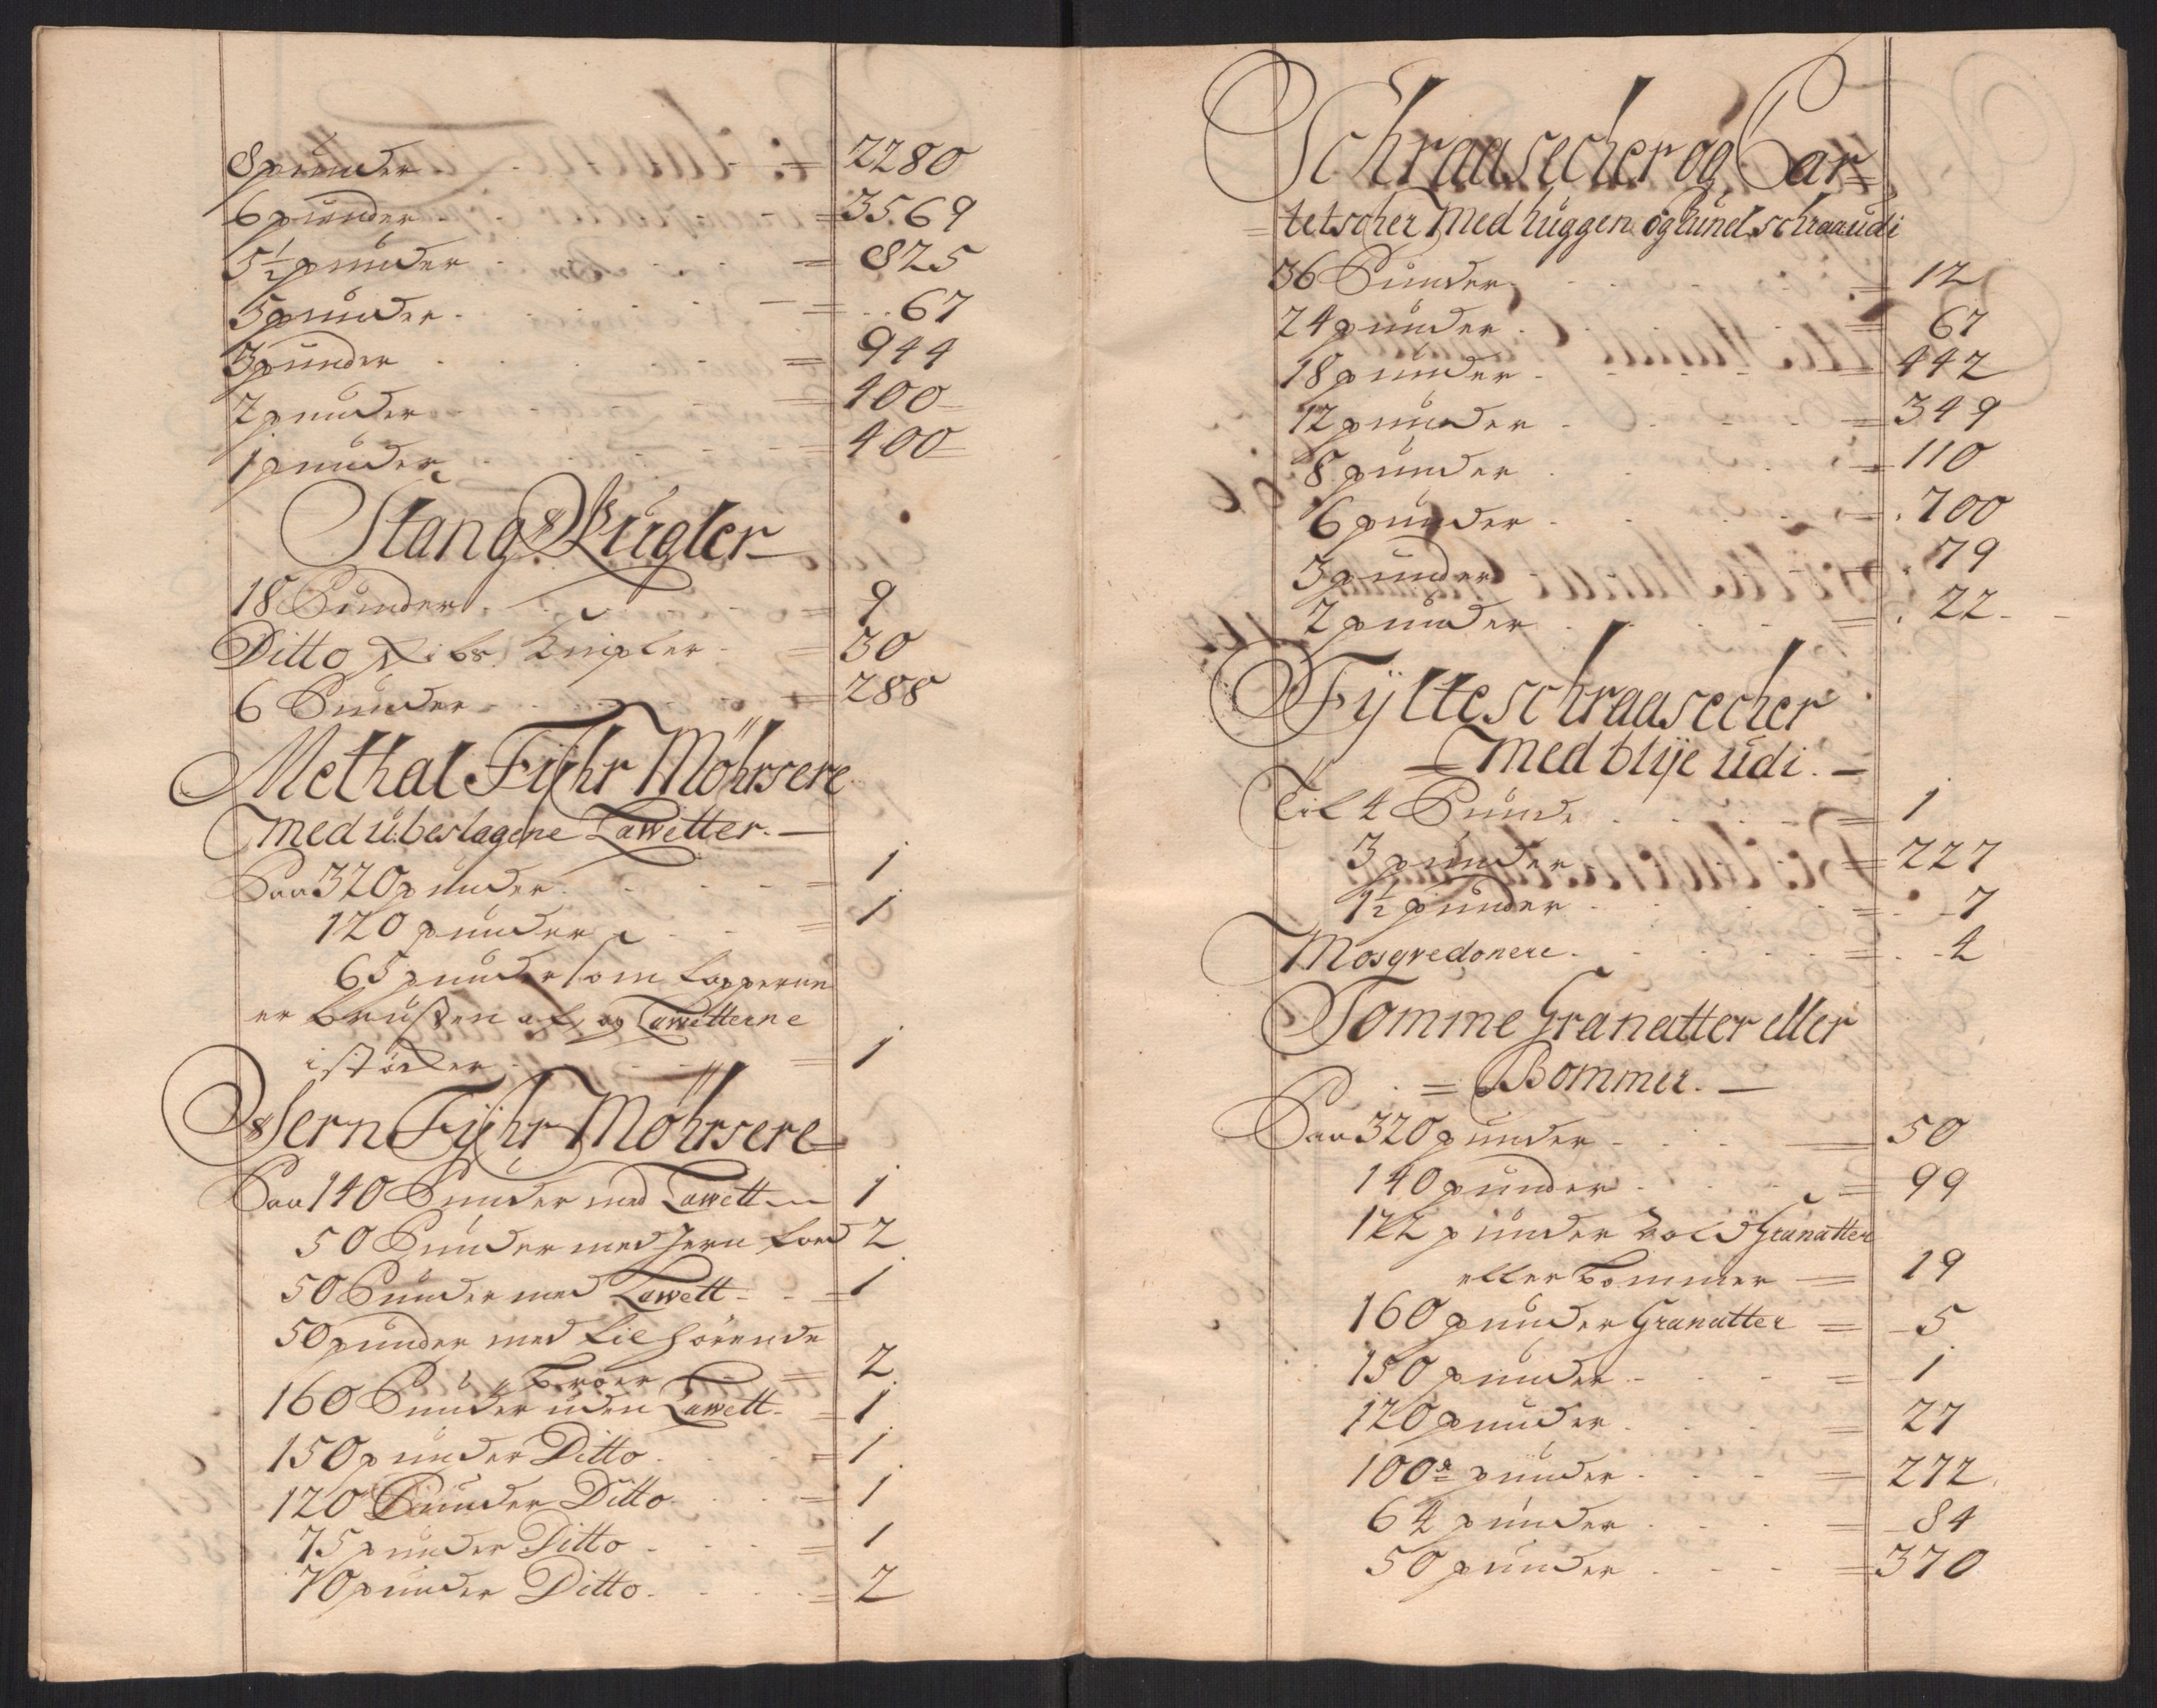 8 punder = 2280
6 punder = 3569
5½ punder = 825
5 punder = 67
3 punder = 944
2 punder = 400
1 punder = 400
Stang Kugler
18 Punder = 9
Ditto Knipler = 30
6 Punder = 288
Methal Fyhr Möhrsere
Med ubeslagene Lawetter.
Paa 320 punder = 1
120 punder = 1
65 punder som
er brußen af, og Lawetterne
i støcker = 1
Jern Fyhr Möhrsere
Paa 140 Punder med Lawett 1
50 Punder med Jern 2
50 Punder med Lawett = 1
50 punder med tilhörende
2
160 Punder uden Lawett = 1
150 punder Ditto = 1
120 Punder Ditto = 1
75 punder Ditto = 1
70 punder Ditto = 2
Schraasecher og Car=
=tetscher Med huggen og Rund schraa udi
36 Punder = 12
24 punder = 67
18 punder = 442
12 punder = 349
8 punder = 110
6 punder = 700
3 punder = 79
2 punder = 22
Fylte schraasecher
Med blye udi.
Til 4 Punde = 1
3 punder = 227
1½ punder = 7
Mosqvedonere = 4
Tomme Granatter eller
= Bommer.
Paa 320 punder = 50
140 punder = 99
122 punder Granatter
eller Bommer = 19
160 punder Granatter = 5
150 punder = 1
120 punder = 27
100 punder = 272
64 punder = 84
50 punder = 370